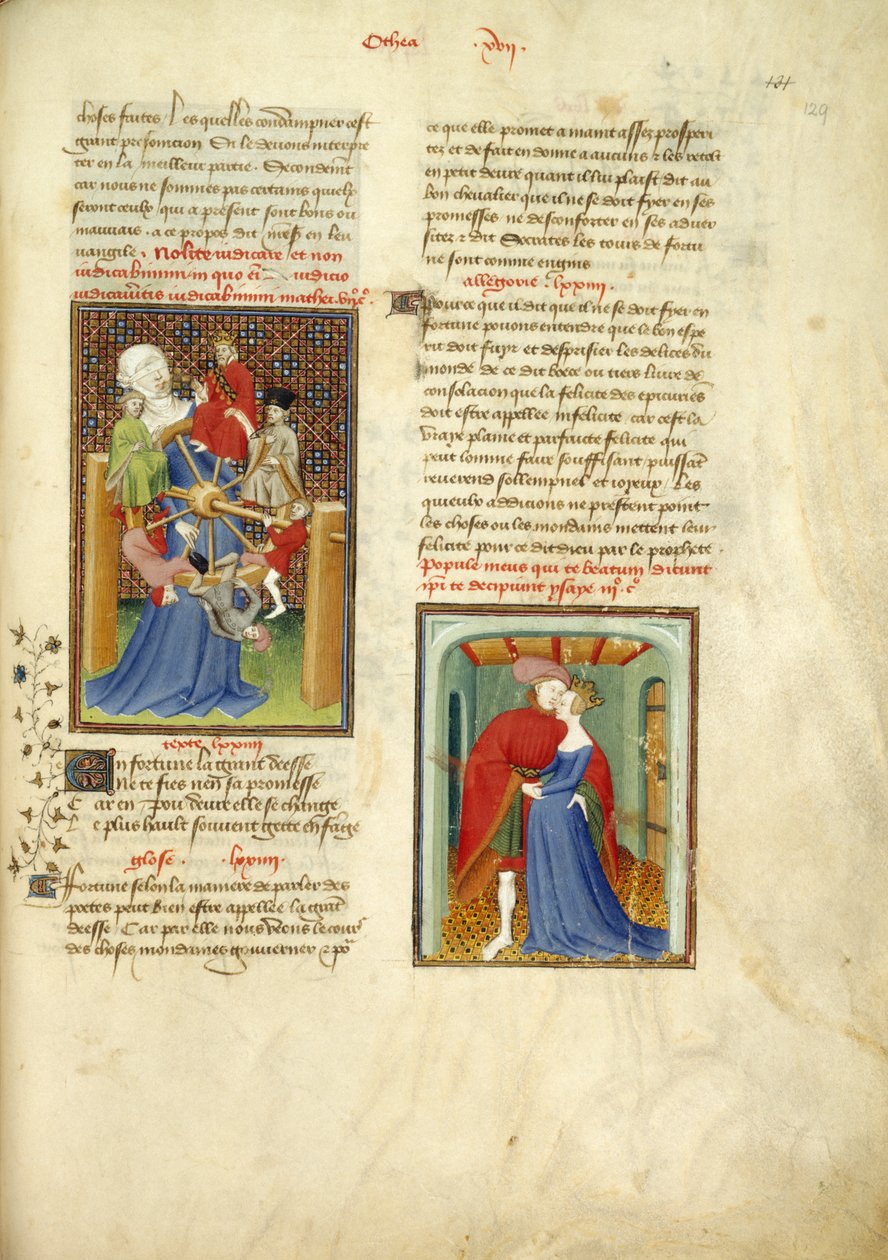 Othea .xvii.
131
129
choses faites / Les quelles condampner cest
grant presomcion Si le devons interpre
ter en la meilleur partie. Secondemt
car nous ne sommes pas certains quielx
seront ceulx qui a present sont bons ou
mauvais. a ce propos dit en leu
vangile. Nolite iudicare et non
iudicabimini in quo eī iudicio
iudicaveritis iudicabimini mathei. vii.º cº.
texte lxxiiii
En fortune la grant deesse
Ne te fies nen sa promesse
Car en pou deure elle se change
Le plus hault souvent gette en fange
glose. .lxxiiii.
Fortune selon la maniere de parler des
poetes peut bien estre appellee la grāt
deesse / Car par elle nous veons le cours
des choses mondaines gouverner & pō
ce que elle promet a maint assez prosperi
tez et de fait en donne a aucuns & les retolt
en petit deure quant il lui plaist. dit au
bon chevalier que il ne se doit fyer en ses
promesses ne desconforter en ses adver
sitez & dit Socrates les tours de fortu
ne sont comme engins
allegorie .lxxiiii.
Pource que il dit que il ne se doit fyer en
fortune povons entendre que le bon espe
rit doit fuyr et desprisier les delices du
monde de ce dit boece ou tiers livre de
consolacion que la felicite des epicuriēs
doit estre appellee infelicite. car cest la
vraye plaine et parfaicte felicite qui
peut lomme faire souffisant puissāt
reverend sollempnel et ioyeux / Les
quieulx addicions ne prestent point
les choses ou les mondains mettent leur
felicite pour ce dit dieu par le prophete.
Popule meus qui te beatum dicunt
ipi te decipiunt ysaye iiiº. cº